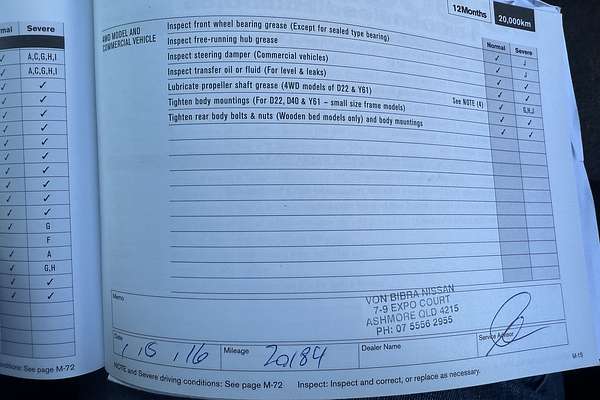 12Months 20,000km
mal Severe
✓ A,C,G,H,I
✓ A,C,G,H,I
✓ ✓
✓ ✓
✓ ✓
✓ ✓
✓ ✓
✓ ✓
✓ ✓
✓ ✓
✓ ✓
✓ ✓
✓ G
F
✓ A
✓ G,H
✓ ✓
✓ ✓
nditions: See page M-72
4WD MODEL AND
COMMERCIAL VEHICLE
Normal Severe
Inspect front wheel bearing grease (Except for sealed type bearing) ✓ J
Inspect free-running hub grease ✓ J
Inspect steering damper (Commercial vehicles) ✓ ✓
Inspect transfer oil or fluid (For level & leaks) ✓ ✓
Lubricate propeller shaft grease (4WD models of D22 & Y61) See NOTE (4) ✓ G,H,J
Tighten body mountings (For D22, D40 & Y61 – small size frame models) ✓ ✓
Tighten rear body bolts & nuts (Wooden bed models only) and body mountings ✓ ✓
Memo
VON BIBRA NISSAN
7-9 EXPO COURT
ASHMORE QLD 4215
PH: 07 5556 2955
Date
Mileage 20184
Dealer Name
Service Advisor
NOTE and Severe driving conditions: See page M-72 Inspect: Inspect and correct, or replace as necessary.
M-15